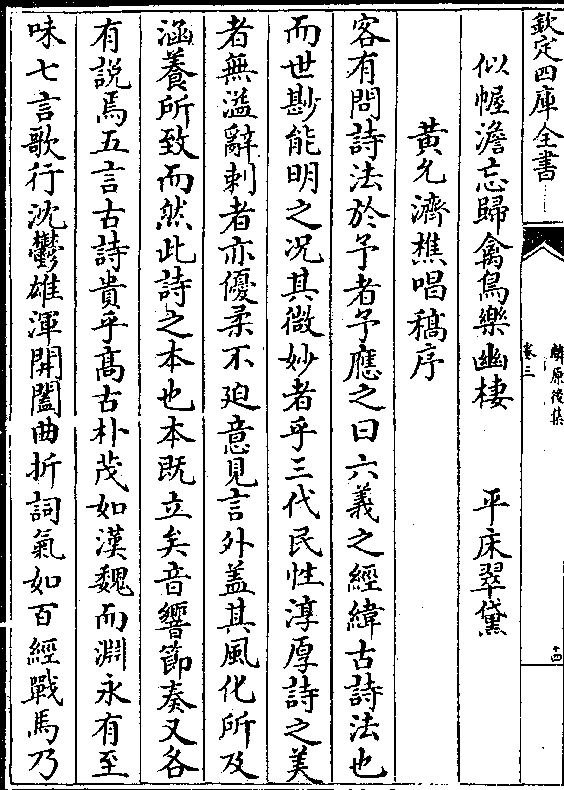 欽定四庫全書
麟原後集
卷三
十四
似幄澹忘歸禽鳥樂幽棲　　平床翠黛
黄允濟樵唱稿序
客有問詩法於予者予應之曰六義之經緯古詩法也
而世尠能明之况其微妙者乎三代民性淳厚詩之美
者無溢辭刺者亦優柔不廹意見言外盖其風化所及
涵養所致而然此詩之本也本既立矣音響節奏又各
有説焉五言古詩貴乎髙古朴茂如漢魏而淵永有至
味七言歌行沈鬱雄渾開闔曲折詞氣如百經戰馬乃